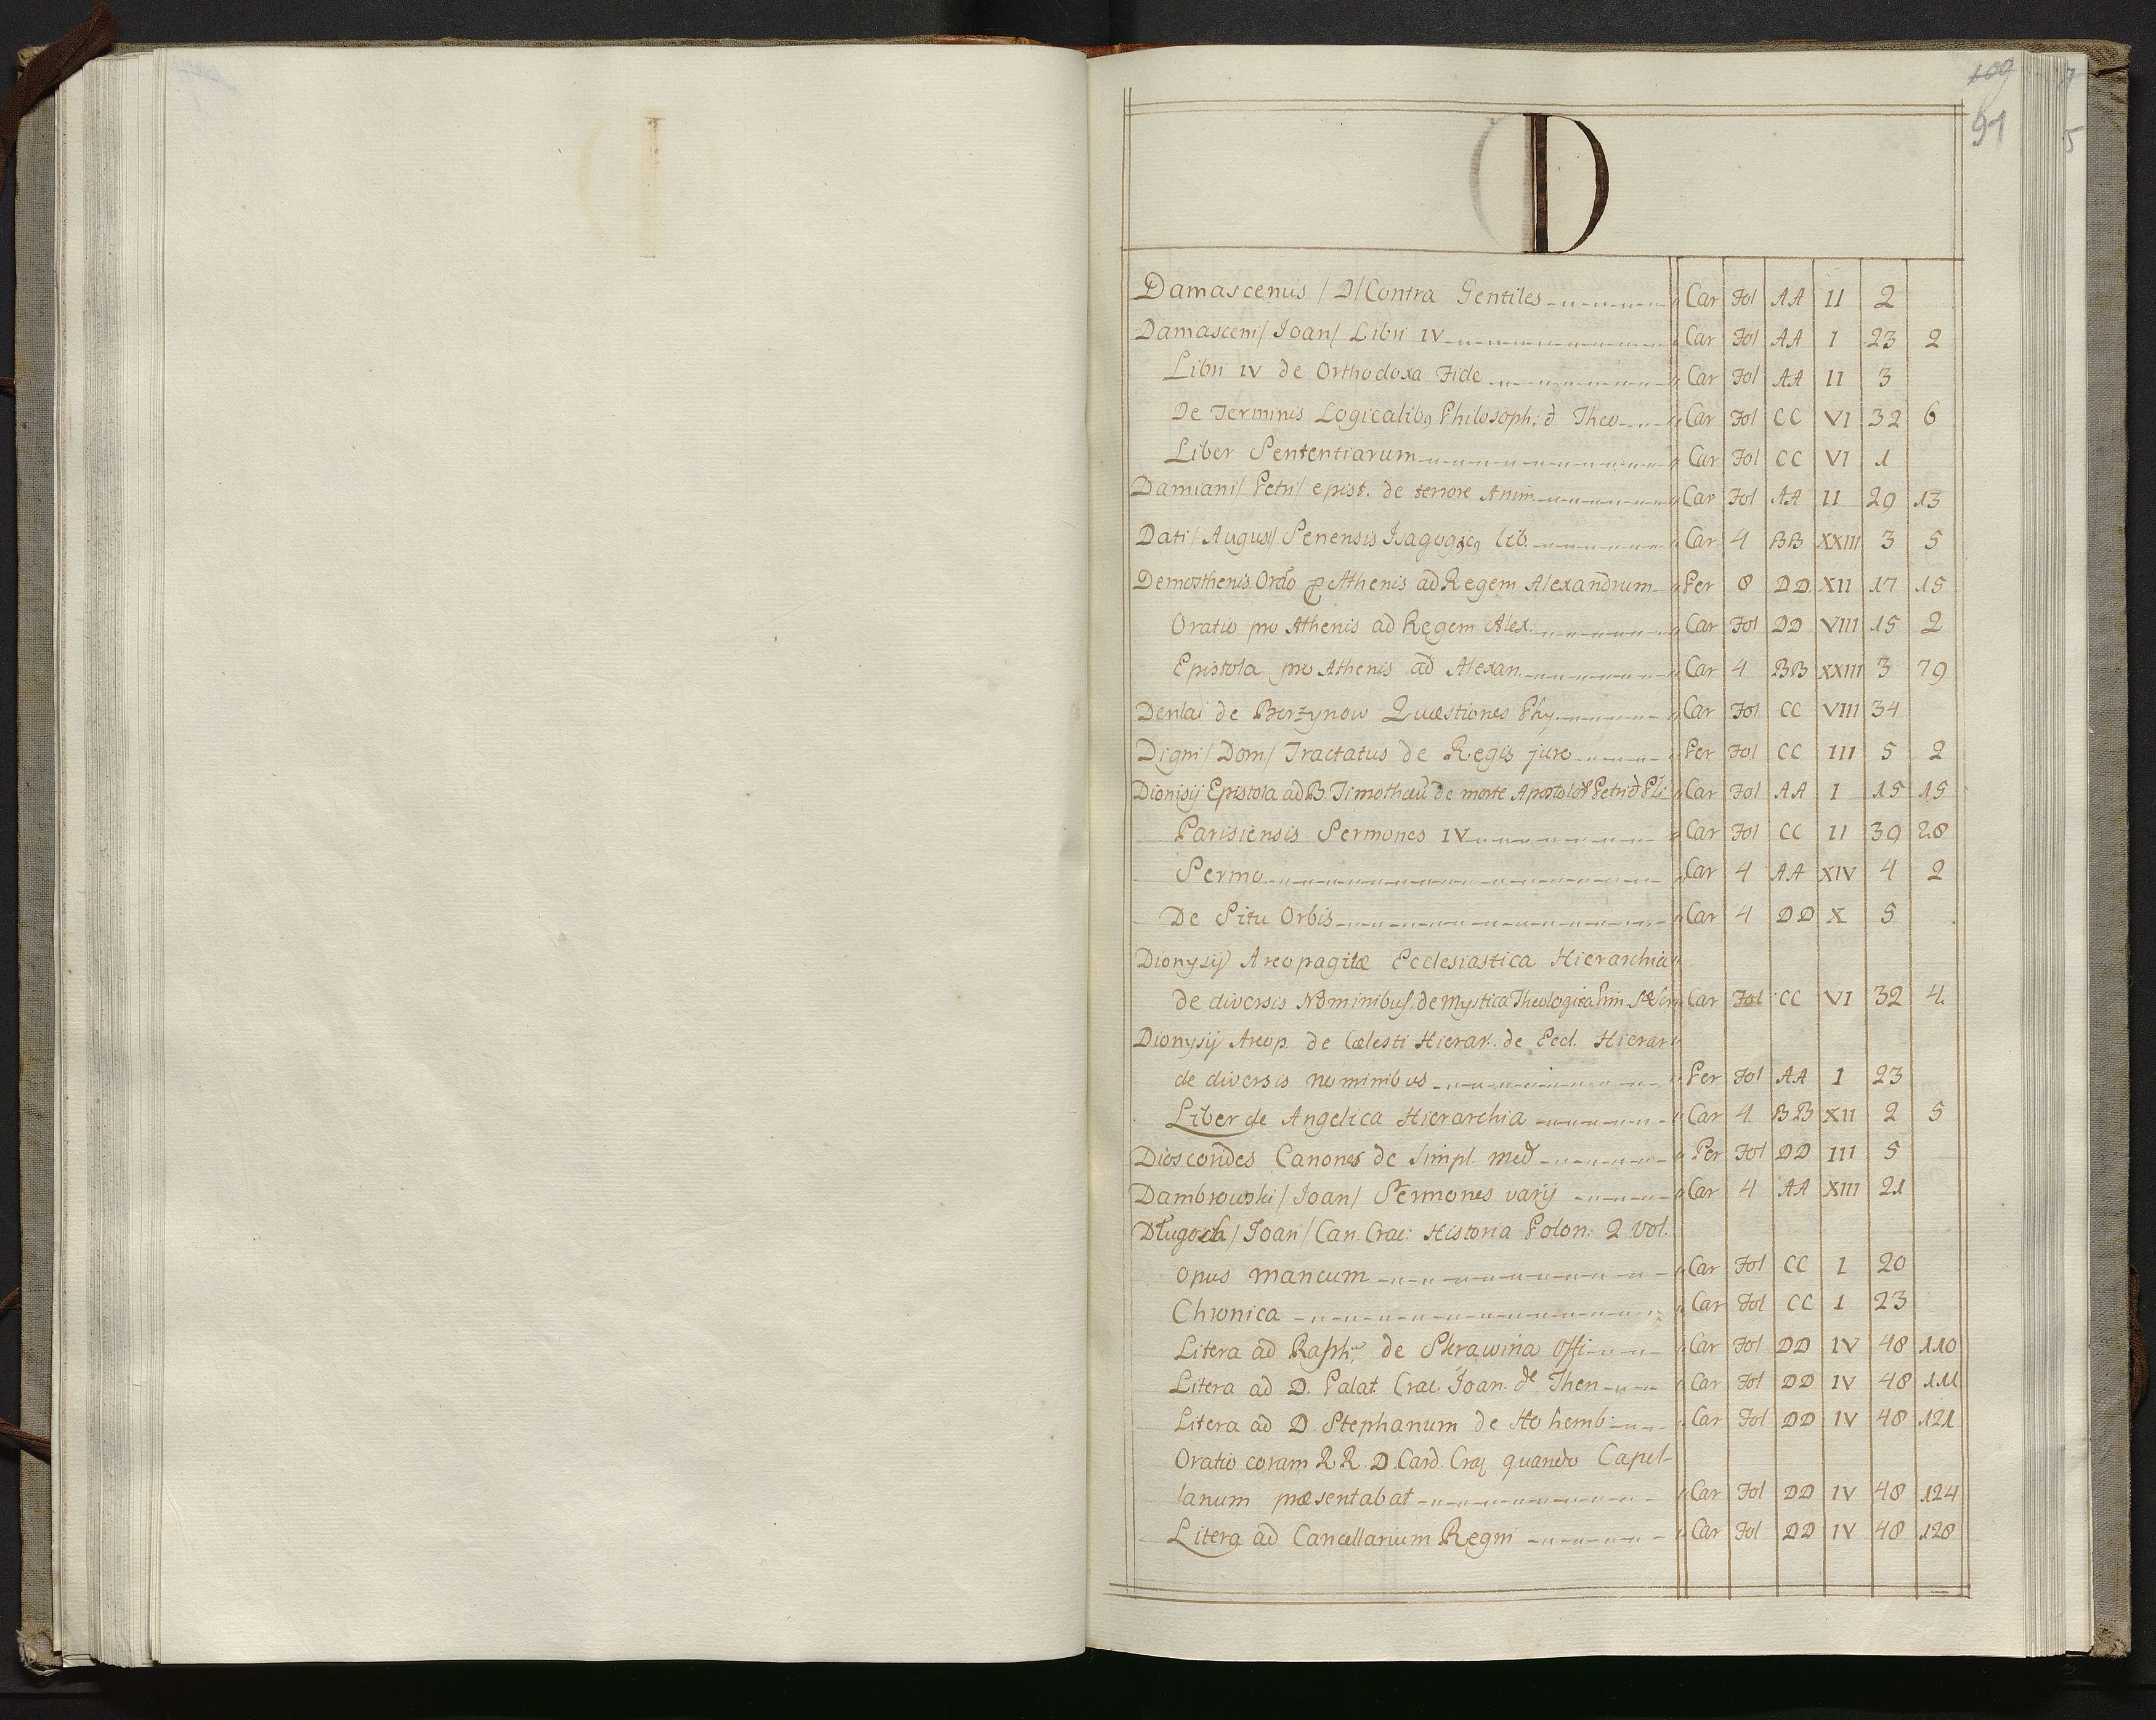 109
91
D
Damascenus /D/ Contra Gentiles Car Fol AA II 2
Damasceni / Joan / Libri IV Car Fol AA I 23 2
Libri IV de Orthodoxa Fide Car Fol AA II 3
De Terminis Logicalibꝰ Philosoph: & Theo Car Fol CC VI 32 6
Liber Sententiarum Car Fol CC VI 1
Damiani / Petri / epist. de terrore Anim Car Fol AA II 29 13
Dati / August / Senensis lib. Car 4 BB XXIII 3 5
Demosthenis Orāo ꝓ Athenis ad Regem Alexandrum Per 8 DD XII 17 15
Oratio pro Athenis ad Regem Alex. Car Fol DD VIII 15 2
Epistola pro Athenis ad Alexan. Car 4 BB XXIII 3 79
de Borzynow Quæstiones Phy. Car Fol CC VIII 34
Digni / Dom / Tractatus de Regis jure Per Fol CC III 5 2
Dionisij Epistola ad B. Timotheū de morte Petri & Car Fol AA I 15 15
Parisiensis Sermones IV Car Fol CC II 39 28
Sermo Car 4 AA XIV 4 2
De Situ Orbis Car 4 DD X 5
Dionysij Areopagitæ Ecclesiastica Hierarchia
de diversis Nominibus, de Mystica Theologica Car Fol CC VI 32 4
Dionysij Areop. de Cælesti Hierar. de Eccl. Hierar
de diversis nominibus Per Fol AA I 23
Liber de Angelica Hierarchia Car 4 BB XII 2 5
Dioscorides Canones de Simpl. med Per Fol DD III 5
Dambrowski / Joan / Sermones varij Car 4 AA XIII 21
Długosch / Joan / Can. Crac: Historia Polon: 2 Vol.
opus mancum Car Fol CC I 20
Chronica Car Fol CC I 23
Litera ad Raph. de Skrawina Offi Car Fol DD IV 48 110
Litera ad D. Palat. Crac. Joan. de Then Car Fol DD IV 48 111
Litera ad D Stephanum de Hohemb Car Fol DD IV 48 121
Oratio coram RR. D. Card. Crac quando Capel-
lanum præsentabat Car Fol DD IV 48 124
Litera ad Cancellarium Regni Car Fol DD IV 48 128